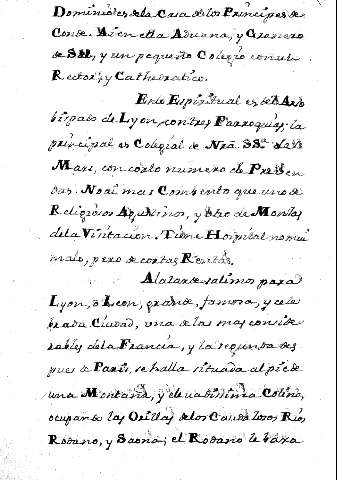 Dominiôs de la Casa de los Principes de
Conde. Ai en ella Aduana, y Granero
de Sal, y un pequeño Colegio con un
Rector, y Cathedratico.
En lo Espiritual es del Arzo
bispado de Lyon con tres Parroquias; la
principal es Colegial de Nrã. Srã. de la
Mars, con corto numero de Preben
das. No ai mas Combento que uno de
Religiosos Capuchinos, y otro de Monjas
de la Visitacion. Tiene Hospital no mui
malo, pero de cortas Rentas.
A la tarde salimos para
Lyon, ò Leon, grande, famosa, y cele
brada Ciudad, una de las mas conside
rables de la Francia, y la segunda des
pues de Paris, se halla situada al pie de
una Montaña, y elevadissima Colina,
ocupando las Orillas de los Caudalosos Rios
Rodano, y Saona; el Rodano le baxa